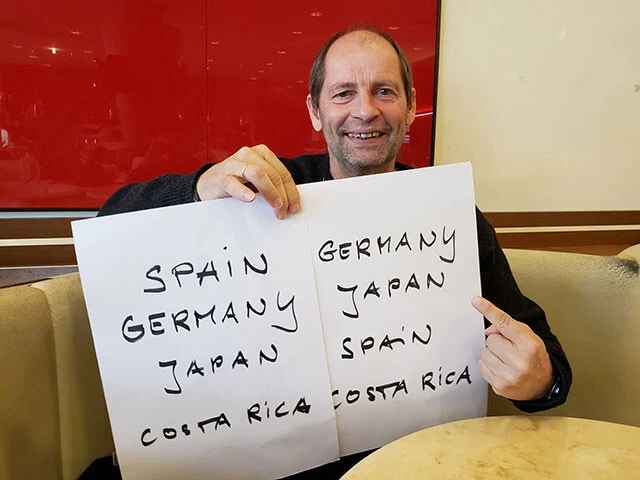 SPAIN
GERMANY
JAPAN
COSTA RICA
GERMANY
JAPAN
SPAIN
COSTA RICA